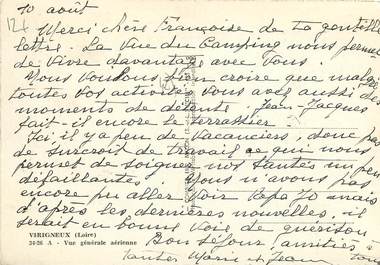 10 août
Merci chère Françoise de ta gentille
lettre. La Vue du Camping nous permet
de vivre davantage avec vous.
Nous voulons bien croire que malgré
toutes vos activités vous avez aussi des
moments de détente. Jean-Jacques
fait-il encore le terrassier
Ici il y a peu de vacanciers, donc pas
de surcroit de travail ce qui nous
permet de soigner nos santés un peu
défaillantes. Nous n'avons pas
encore pu aller voir Papa Jo mais
d'après les dernières nouvelles, il
serait en bonne voie de guérison
Bon séjour, amitiés à tous
Tantes Marie et Jeanne
VIRIGNEUX (Loire)
24-26 A - Vue générale aérienne